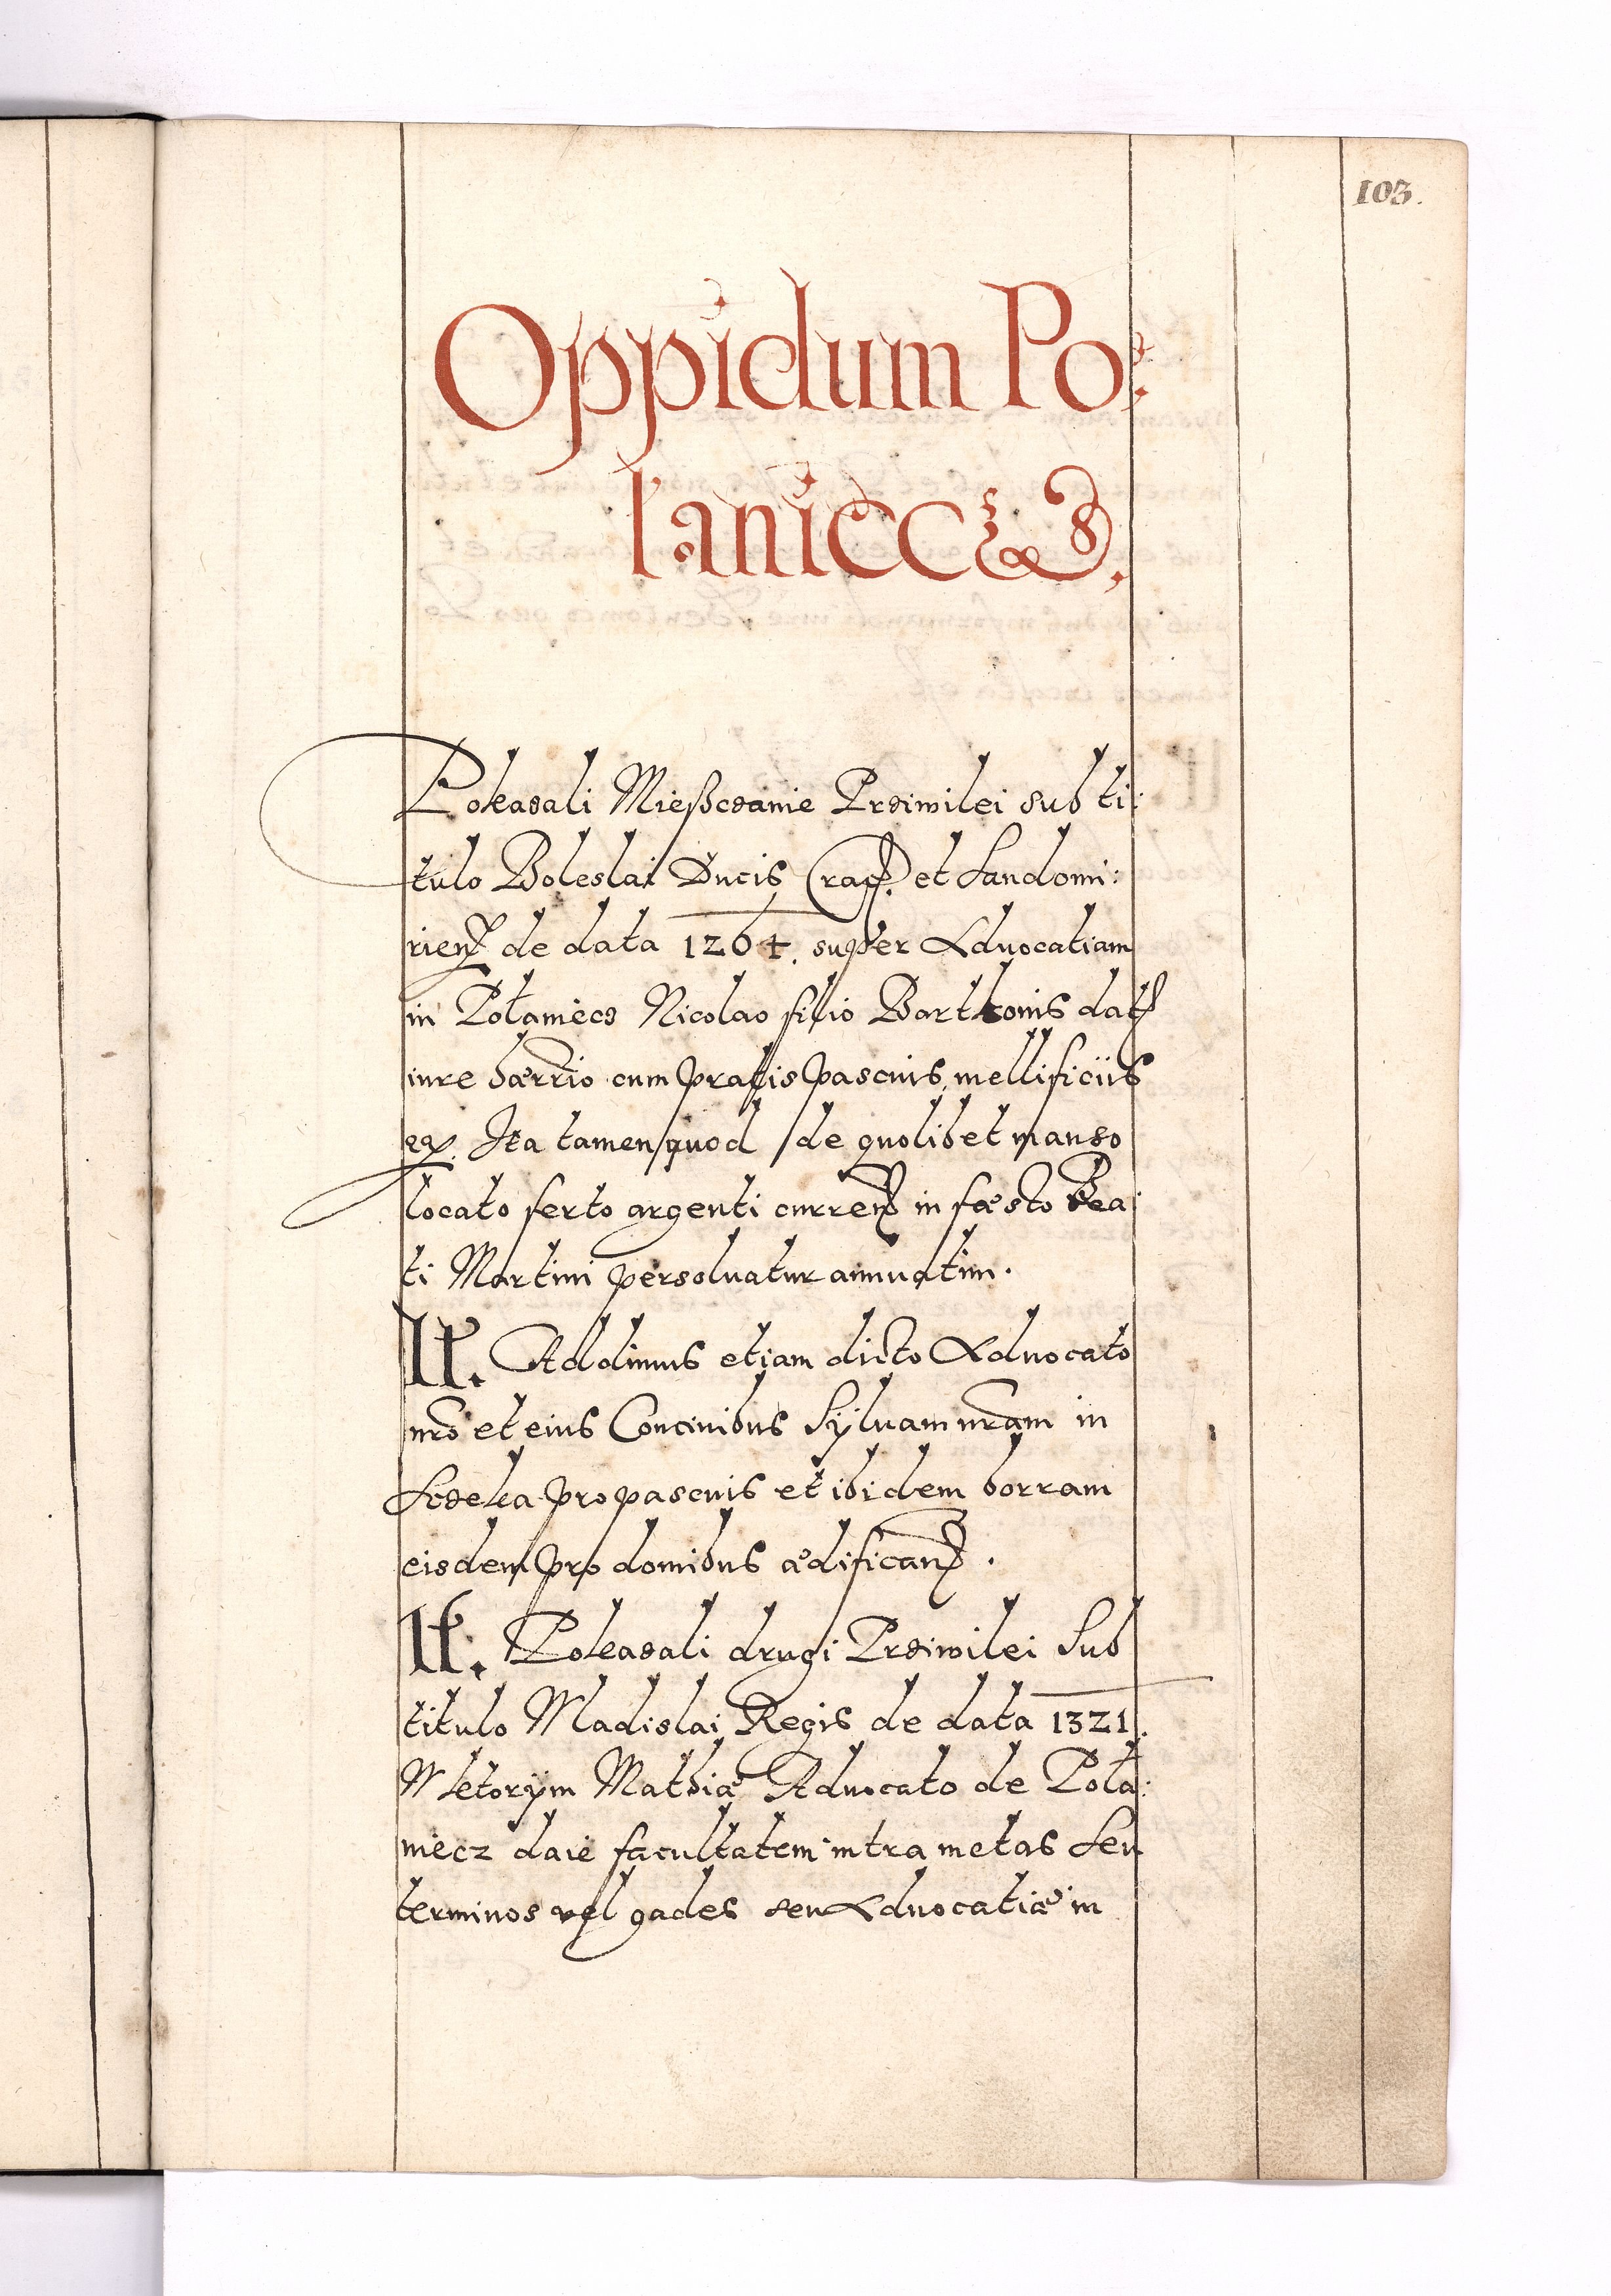 103.
Oppidum Po:
łaniecz.
Pokazali Mieszczanie Prziwilei sub ti:
tulo Boleslai Ducis Crac. et Sandomi:
rien de data 1264. super Advocatiam
in Połaniecz Nicolao filio Barthonis dat
iure hærrio cum pratis pascuis, mellificiis
etc. Ita tamen quod de quolibet manso
locato ferto argenti curren in fæsto Bea:
ti Martini persoluatur annuatim.
It. Addimus etiam dicto Advocato
nrõ et eius Conciuibus Sÿluam nram in
Sczeka pro pascuis et ibidem borram
eisdem pro domibus ædifican.
It. Pokazali drugi Przÿwilei Sub
titulo Wladislai Regis de data 1321.
W ktorÿm Mathiæ Advocato de Poła:
niecz daie facultatem intra metas Seu
terminos vel gades seu Advocatiæ in